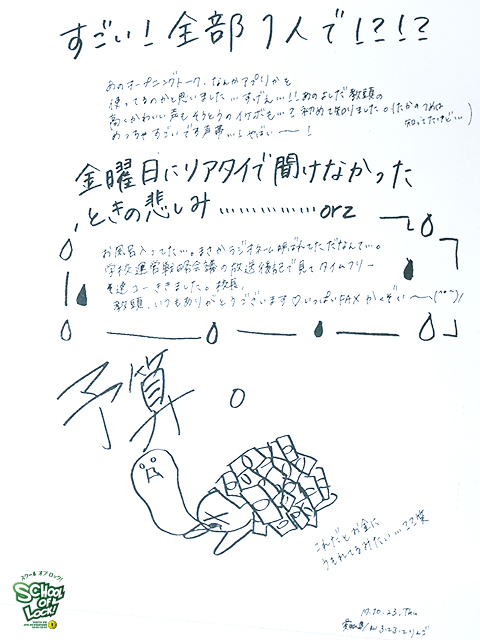 すごい！全部1人で！？！？
あのオープニングトーク、なんかアプリかを
使ってるのかと思いました…すげえ…!!あのよしだ教頭の
高くかわいい声もそうとうのイケボも…？初めて知りました。(たかのつめは
知ってたけど…)
めっちゃすごいです声帯…！やばい〜！
金曜日にリアタイで聞けなかった
ときの悲しみ…………orz
お風呂入ってた…。まさかラジオネーム呼ばれてただなんて…。
学校運営戦略会議の放送後記で見てタイムフリー
ききました。校長、
教頭、いつもありがとうございます♡いっぱいFAXかくぞい〜
予算
これだとお金に
うもれてるみたい…ココ笑
17.10.23.Thu
スクール オブ ロック！
SCHOOL OF LOCK!